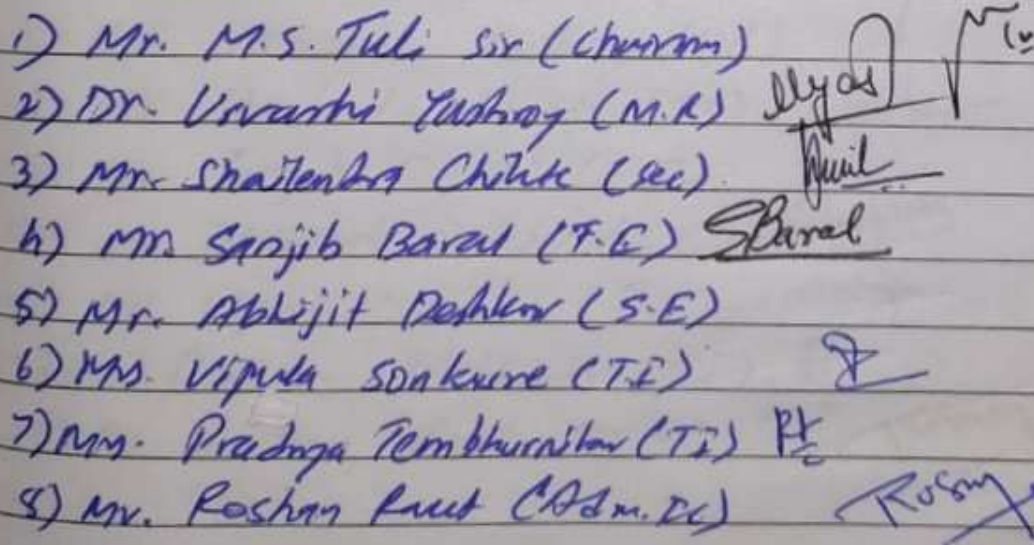 1) Mr. M.S. Tuli sir (Chairman)
2) Dr. Urvashi Yashroy (M.R)
3) Mr. Shailendra Chitate (sec)
4) Mr. Sanjib Baral (F.C) SBaral
5) Mr. Abhijit Deshkar (S.E)
6) Mrs. Vipula Sonkure (T.I)
7) Pradnya Tembhurnikar (TI)
8) Mr. Roshan Raut (Adm. Ic)